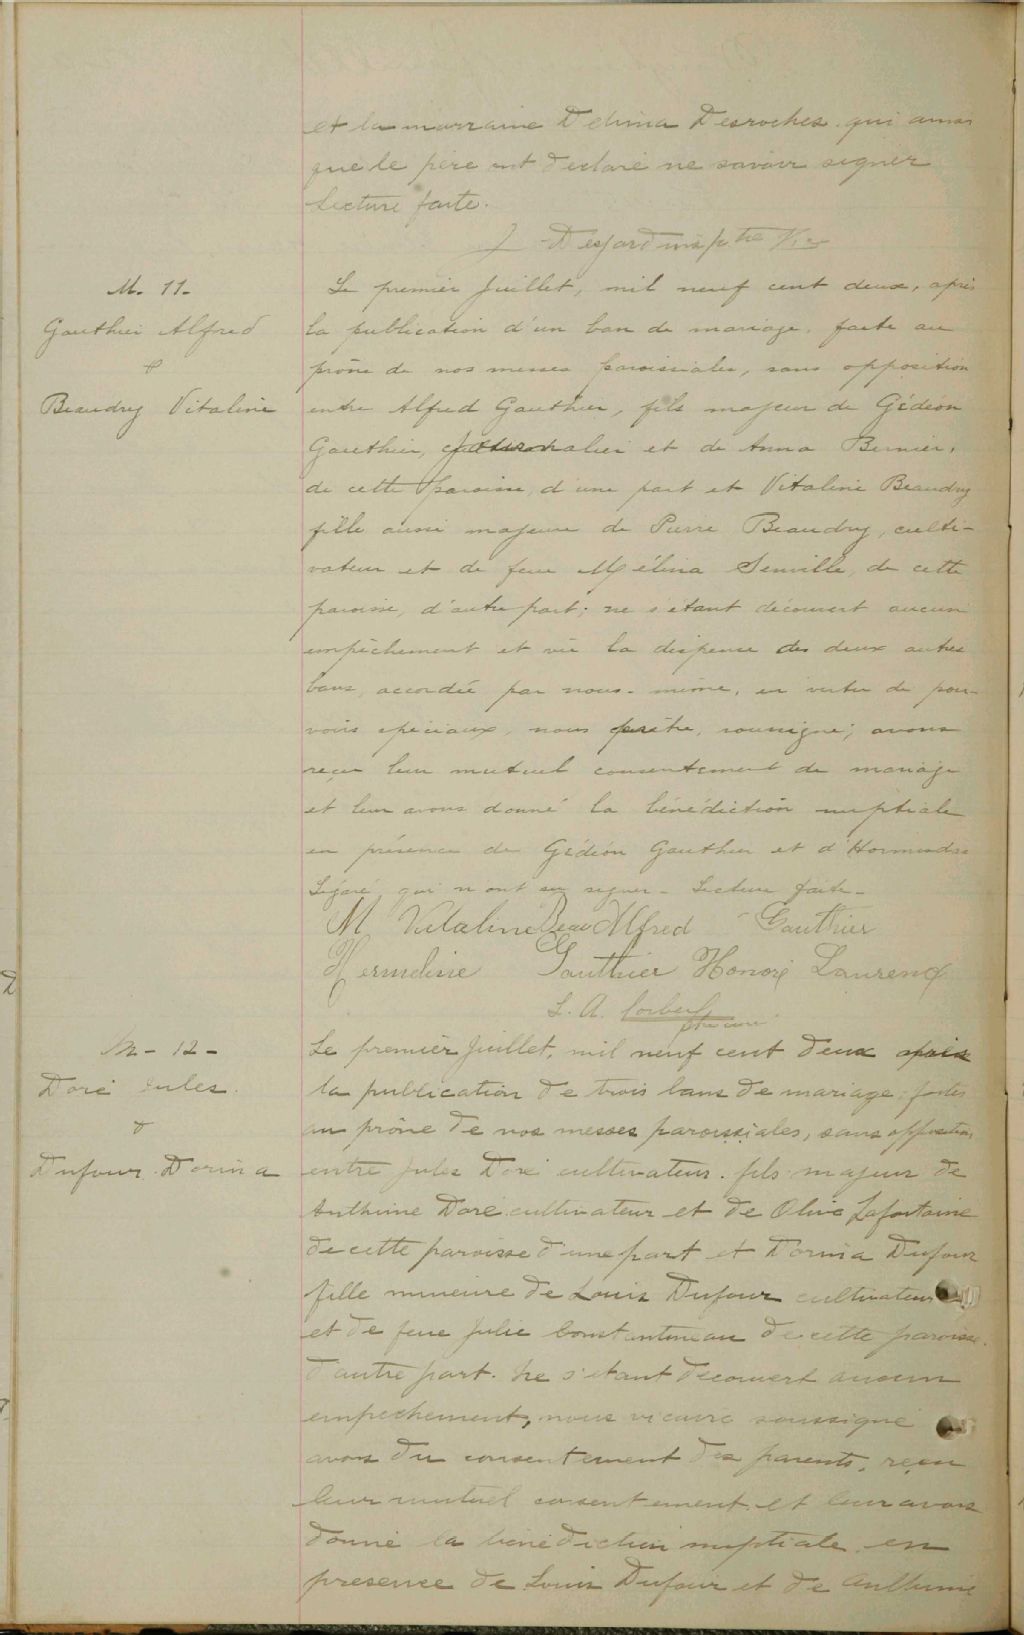 et la marraine Delima Desroches qui ainsi
que le père ont declaré ne savoir signer
Lecture faite.
J Desjardins ptre Vic
M. 11.
Gauthier Alfred
&
Beaudry Vitaline
Le premier Juillet, mil neuf cent deux, après
la publication d'un ban de mariage, faite au
prône de nos messes paroissiales, sans opposition
entre Alfred Gauthier, fils majeur de Gédéon
Gauthier, journalier et de Anna Bernier,
de cette paroisse, d'une part et Vitaline Beaudry
fille aussi majeure de Pierre Beaudry, culti-
vateur et de feue Mélina Senville, de cette
paroisse, d'autre part; ne s'étant découvert aucun
empêchement et vu la dispense des deux autres
bans, accordée par nous-même, en vertu de pou-
voirs spéciaux, nous prêtre, soussigné, avons
reçu leur mutuel consentement de mariage
et leur avons donné la bénédiction nuptiale
en présence de Gédéon Gauthier et d'Hormisdas
Légaré, qui n'ont su signer - Lecture faite -
M Vitaline Beau Alfred Gauthier
Hermeline Gauthier Honoré Laurence
L. A. ptre curé
M - 12 -
Doré Jules.
&
Dufour Dorina
Le premier Juillet, mil neuf cent deux après
la publication de trois bans de mariage, faites
au prône de nos messes paroissiales, sans opposition,
entre Jules Doré cultivateur. fils majeur de
Anthime Doré cultivateur et de Olive Lafontaine
de cette paroisse d'une part et Dorina Dufour
fille mineure de Louis Dufour cultivateur
et de feue Julie Constantineau de cette paroisse.
d'autre part. Ne s'étant découvert aucun
empechement, nous vicaire soussigné
avons du consentement des parents, reçu
leur mutuel consentement et leur avons
donné la bénédiction nuptiale en
presence de Louis Dufour et de Anthime